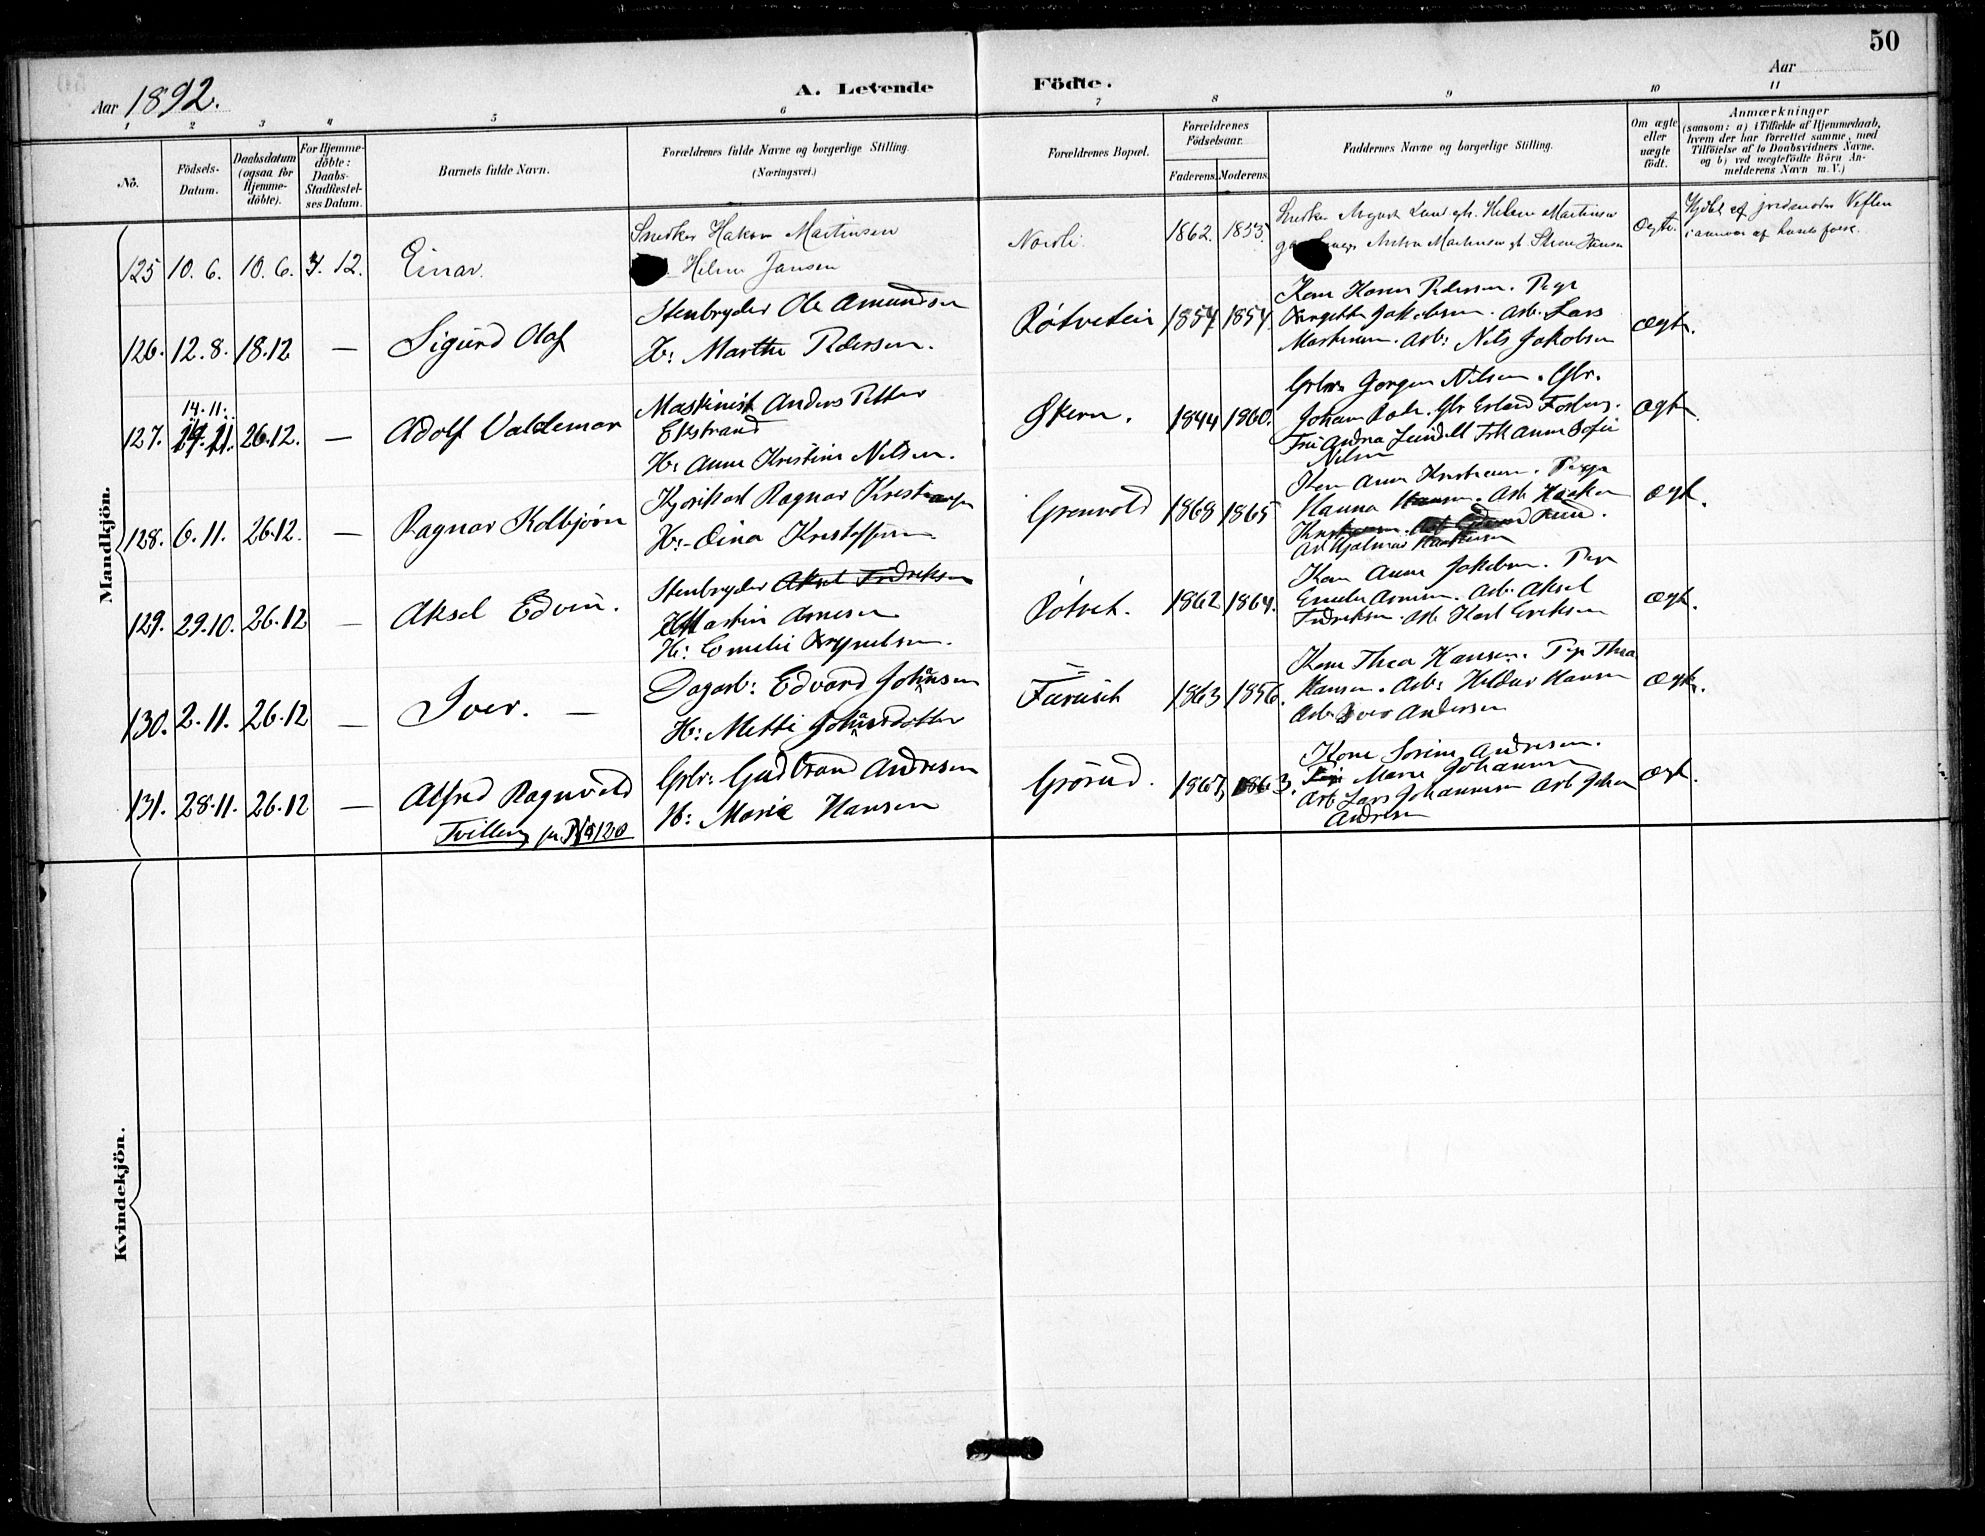 50
Aar 1892.
A. Levende Födte.
Aar
1 2 3 4 5 6 7 8 9 10 11
Nö.
Födsels-
Datum.
Daabsdatum
(ogsaa for
Hjemme-
döbte).
For Hjemme-
döbte:
Daabs-
Stadfæstel-
ses Datum.
Barnets fulde Navn.
Forældrenes fulde Navne og borgerlige Stilling.
(Næringsvei.)
Forældrenes Bopæl.
Forældrenes
Födselsaar.
Faderens. Moderens.
Faddernes Navne og borgerlige Stilling.
Om ægte
eller
uægte
födt.
Anmærkninger
(saasom: a) i Tilfælde af Hjemmedaab,
hvem der har forrettet samme, med
Tilföielse af to Daabsvidners Navne,
og b) ved uægtefödte Börn An-
melderens Navn m. V.)
Mandkjön.
125 10. 6. 10. 6. 4. 12. Einar.
Snedker Hakon Martinsen
Hilma Jansen
Nordli. 1862. 1853.
Snedker August Lund Hilma Martinsen
Anton Martinsen
Ægte.
Hjdbt af jordmoder
126. 12. 8. 18.12 — Sigurd Olaf
Stenbryder Ole Amundsen
H: Marthe Pedersen.
1857 1857.
Kone Karen Pedersen. Pige
Jakobsen. Arb. Lars
Martinsen. Arb: Nils Jakobsen
Ægte.
14. 11.
127. 26.12. — Adolf Valdemar
Maskinist Anders Petter
Ekstrand
H: Anne Kristine Nilsen.
Økern. 1844 1860.
Grbr. Jörgen Nilsen. Gbr.
Johan Gbr Erland
Nilsen
Ægte
128. 6. 11. 26.12. — Ragnar Kolbjörn
Ragnar Kristiansen
H: Lina Kristoffersen
Grønvold 1868 1865
Kone Anne Kristiansen. Pige
Hanna Arb. Haakon
Arb Hjalmar
Ægt.
129. 29.10. 26.12 — Aksel Edvin.
Stenbryder Aksel Fredriksen
Martin Arnesen
H: Emelie
Rötvet. 1862 1864.
Kone Anne Jakobsen. Pige
Emelie Arnesen. Arb. Aksel
Fredriksen. Arb Karl Eriksen
Ægt.
130. 2. 11. 26.12 — Iver. —
Dagarb: Edvard Johansen
H: Mette Johansdotter
Furuset 1863 1856.
Kone Thea Hansen. Pige Thea
Hansen. Arb: Hildur Hansen
Arb Iver Andersen
Ægt.
131. 28. 11. 26.12 — Alfred Ragnvald
Tvilling m. No 120
Grbr: Gudbrand Andresen
H: Marie Hansen
Grörud. 1867, 1863.
Kone Sorine Andresen.
Pige Marie Johannesen
Arb. Lars Johannesen Arb Johan
Andresen
Ægt.
Kvindekjön.